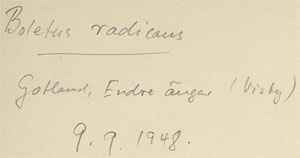 Boletus radicans
Gotland, Endre ängar (Visby)
9. 9. 1948.